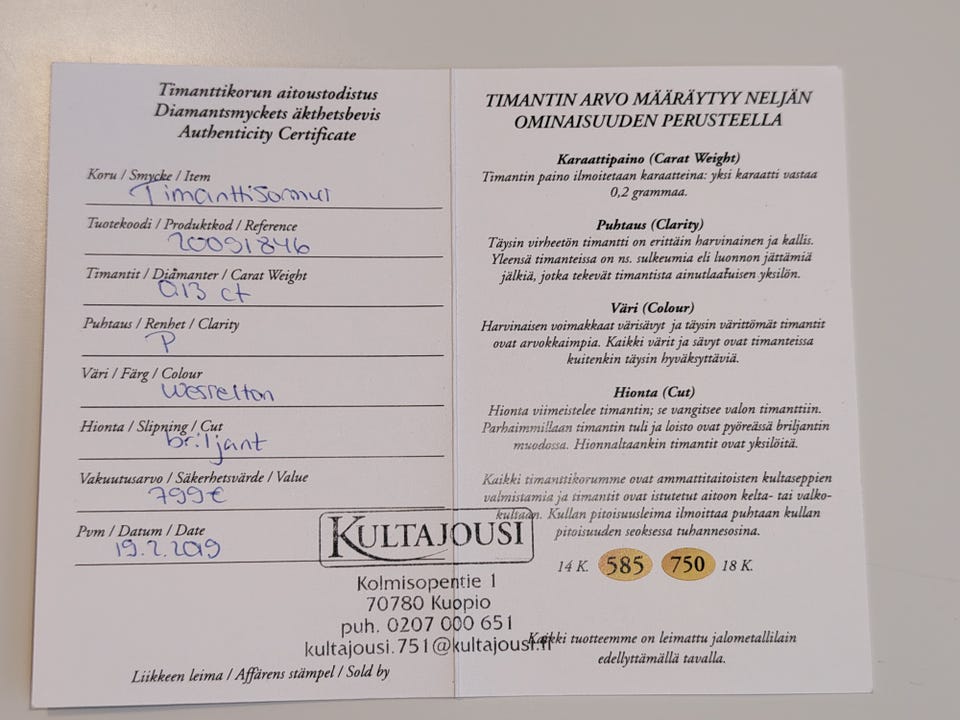 Timanttikorun aitoustodistus
Diamantsmyckets äkthetsbevis
Authenticity Certificate
Koru / Smycke / Item
Timanttisormus
Tuotekoodi / Produktkod / Reference
20091846
Timantit / Diamanter / Carat Weight
0,13 ct
Puhtaus / Renhet / Clarity
P
Väri / Färg / Colour
Wesselton
Hionta / Slipning / Cut
briljant
Vakuutusarvo / Säkerhetsvärde / Value
799€
Pvm / Datum / Date
19.2.2019
KULTAJOUSI
Kolmisopentie 1
70780 Kuopio
puh. 0207 000 651
kultajousi.751@kultajousi.fi
Liikkeen leima / Affärens stämpel / Sold by
TIMANTIN ARVO MÄÄRÄYTYY NELJÄN
OMINAISUUDEN PERUSTEELLA
Karaattipaino (Carat Weight)
Timantin paino ilmoitetaan karaatteina: yksi karaatti vastaa
0,2 grammaa.
Puhtaus (Clarity)
Täysin virheetön timantti on erittäin harvinainen ja kallis.
Yleensä timanteissa on ns. sulkeumia eli luonnon jättämiä
jälkiä, jotka tekevät timantista ainutlaatuisen yksilön.
Väri (Colour)
Harvinaisen voimakkaat värisävyt ja täysin värittömät timantit
ovat arvokkaimpia. Kaikki värit ja sävyt ovat timanteissa
kuitenkin täysin hyväksyttäviä.
Hionta (Cut)
Hionta viimeistelee timantin; se vangitsee valon timanttiin.
Parhaimmillaan timantin tuli ja loisto ovat pyöreässä briljantin
muodossa. Hionnaltaankin timantit ovat yksilöitä.
Kaikki timanttikorumme ovat ammattitaitoisten kultaseppien
valmistamia ja timantit ovat istutetut aitoon kelta- tai valko-
kultaan. Kullan pitoisuusleima ilmoittaa puhtaan kullan
pitoisuuden seoksessa tuhannesosina.
14 K. 585 750 18 K.
Kaikki tuotteemme on leimattu jalometallilain
edellyttämällä tavalla.